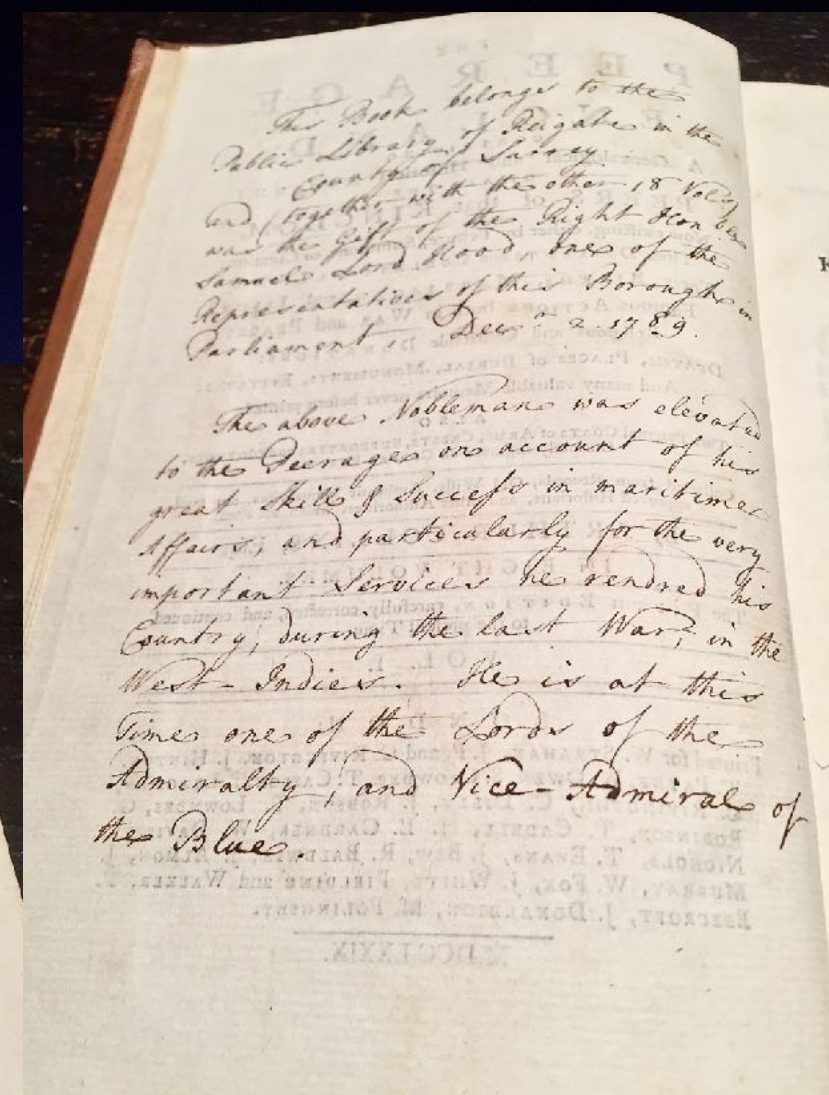 This Book belongs to the
Public Library of Reigate in the
County of Surrey
and, together with the other 18 Vols,
was the Gift of the Right Honble
Samuel Lord Hood, one of the
Representatives of this Borough in
Parliament, Decr 2. 1789.
The above Nobleman was elevated
to the Peerage on account of his
great Skill & Success in maritime
Affairs, and particularly for the very
important Services he rendred his
Country, during the last War, in the
West-Indies. He is at this
Time one of the Lords of the
Admiralty, and Vice-Admiral of
the Blue.